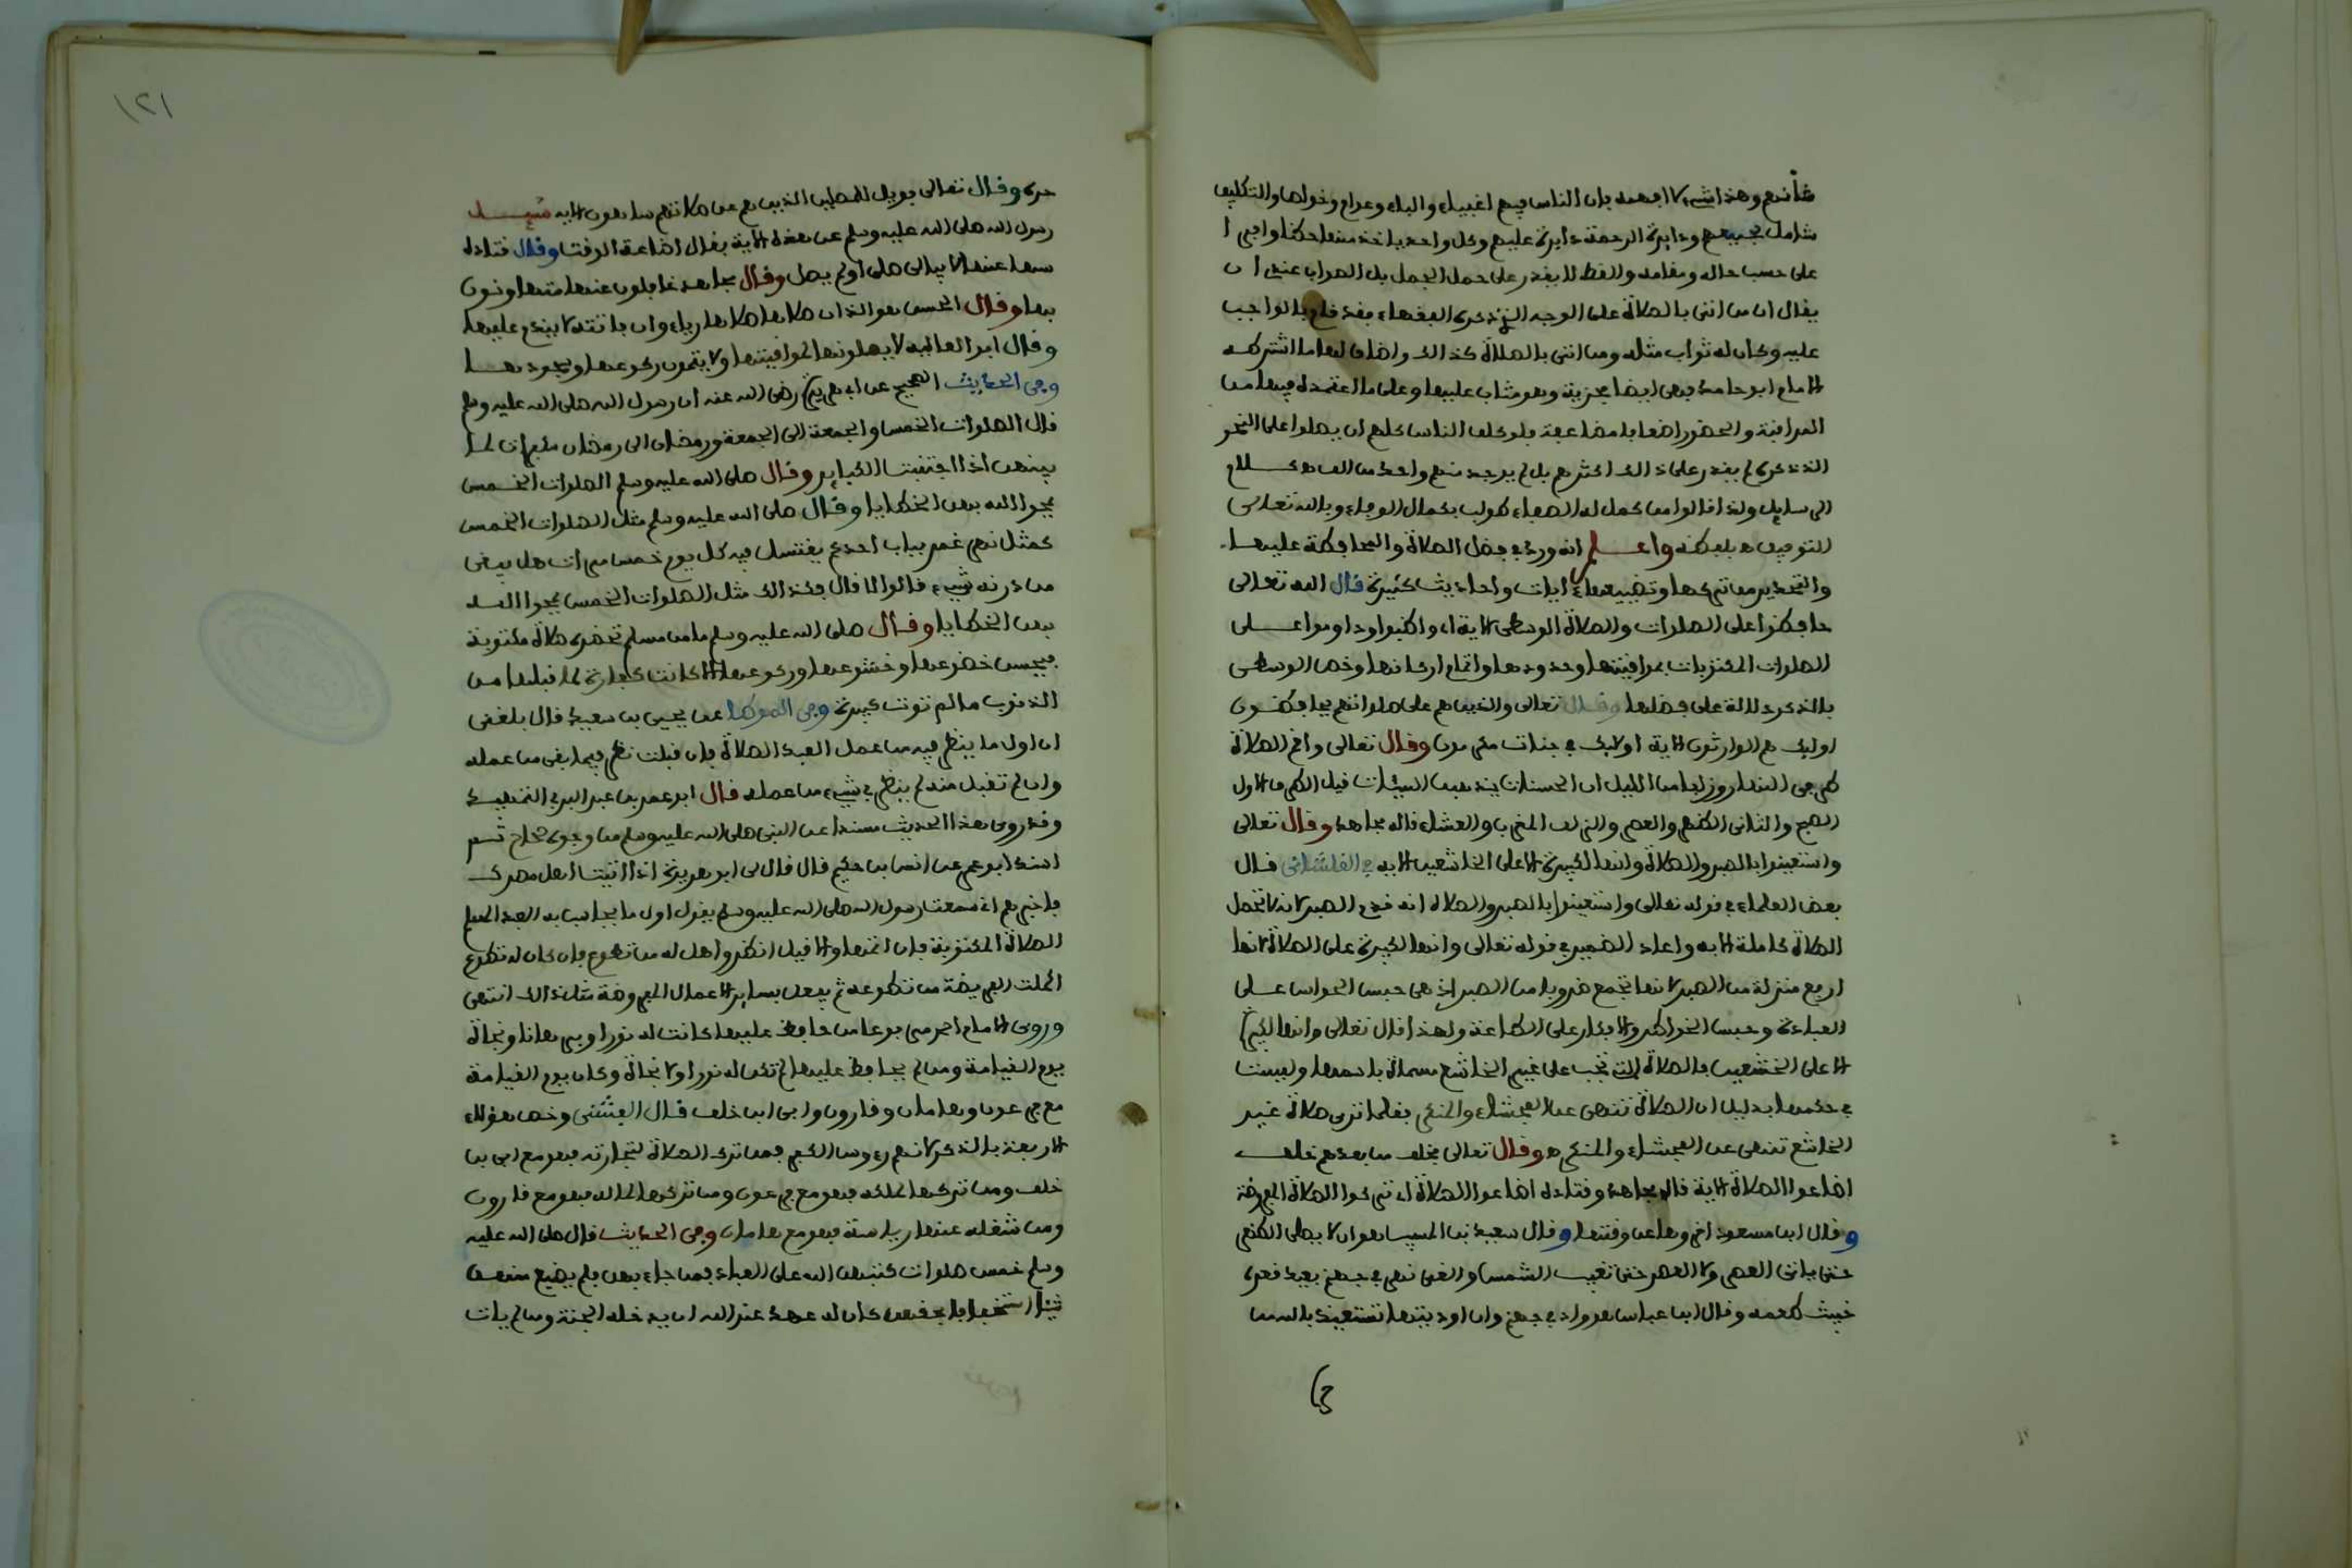 شأنهم وهذا شيء لا ابعد فإن الناس فيهم اغبياء والبله وعوام وخواص والتكليف
شامل لجميعهم ودايرة الرحمة دايرة عليهم وكل واحد ياخذ منها حظا وافرا
على حسب حاله ومقامه والقط لا يقدر على حمل الجمل بل الصواب عندى ان
يقال ان من اتى بالصلاة على الوجه الذى ذكره الفقهاء فقد قام بالواجب
عليه وكان له ثواب مثله ومن اتى بالصلاة كذالك واضاف لها ما اشترطه
الامام ابو حامد فهى ايضا مجزية وهو مثاب عليها وعلى ما اعتمده فيها من
المراقبة والحضور اضعافا مضاعفة فلو كلف الناس كلهم ان يصلوا على النحو
الذى ذكره لم يقدر على ذالك اكثرهم بل لم يوجد منهم واحد من الف
وبالله تعالى
التوفيق بلطفه واعلم انه ورد في فضل الصلاة والمحافظة عليها
والتحذير من تركها وتضييعها ايات واحاديث كثيرة قال الله تعالى
حافظوا على الصلوات والصلاة الوسطى الاية اى واظبوا وداوموا على
الصلوات المكتوبات بمواقيتها وحدودها واتمام اركانها وخص الوسطى
بالذكر دلالة على فضلها وقال تعالى والذين هم على صلواتهم يحافظون
اوليك هم الوارثون الاية اوليك في جنات مكرمون وقال تعالى واقم الصلاة
طرفى النهار وزلفا من الليل ان الحسنات يذهبن السيئات قيل الطرف الاول
الصبح والثانى الظهر والعصر والزلف المغرب والعشاء قاله مجاهد وقال تعالى
واستعينوا بالصبر والصلاة وانها لكبيرة الا على الخاشعين الايه في القلشانى قال
بعض العلماء في قوله تعالى واستعينوا بالصبر والصلاه انه قدم الصبر لانه لا تحمل
الصلاة كاملة الا به واعاد الضمير في قوله تعالى وانها لكبيرة على الصلاة لانها
ارفع منزلة من الصبر لانها تجمع ضروبا من الصبر اذ هى حبس الحواس على
العبادة وحبس الخواطر والافكار على الطاعة ولهذا قال تعالى وانها لكبيرة
الا على الخشعين فالصلاة التى تجب على غير الخاشع مسماة باسمها وليست
في حكمها بدليل ان الصلاة تنهى عن الفحشاء والمنكر فقلما ترى صلاة غير
الخاشع تنهى عن الفحشاء والمنكر ه وقال تعالى فخلف من بعدهم خلف
اضاعوا الصلاة الاية قال مجاهد وقتاده اضاعوا الصلاة اى تركوا الصلاة المفروضة
وقال ابن مسعود اخروها عن وقتها وقال سعيد بن المسيب هو ان لا يصلى الظهر
حتى ياتى العصر ولا العصر حتى تغيب الشمس والغى نهر في جهنم بعيد قعره
خبيث طعمه وقال ابن عباس هو واد في جهنم وان اودية جهنم لتستعيذ بالله من
حره وقال تعالى فويل للمصلين الذين هم عن صلاتهم ساهون الايه سئل
رسول الله صلى الله عليه وسلم عن هذه الاية فقال اضاعة الوقت وقال قتاده
سها عنها لا يبالى صلى او لم يصل وقال مجاهد غافلون عنها متهاونون
بها وقال الحسن هو الذى ان صلاها صلاها رياء وان فاتته لا يندم عليها
وقال ابو العاليه لا يصلونها لمواقيتها ولا يتمون ركوعها وسجودها
وفى الحديث الصحيح عن ابى هريرة رضى الله عنه ان رسول الله صلى الله عليه وسلم
قال الصلوات الخمس والجمعة الى الجمعة ورمضان الى رمضان مكفرات لما
بينهن اذا اجتنبت الكباير وقال صلى الله عليه وسلم الصلوات الخمس
يمحوا الله بهن الخطايا وقال صلى الله عليه وسلم مثل الصلوات الخمس
كمثل نهر غمر بباب احدكم يغتسل فيه كل يوم خمس مرات هل يبقى
من درنه شيء قالوا لا قال فكذالك مثل الصلوات الخمس يمحوا الله
بهن الخطايا وقال صلى الله عليه وسلم ما من مسلم تحضره صلاة مكتوبة
فيحسن خضوعها وخشوعها وركوعها الا كانت كفارة لما قبلها من
الذنوب ما لم توت كبيرة وفى الموطا عن يحيى بن سعيد قال بلغنى
ان اول ما ينظر فيه من عمل العبد الصلاة فان قبلت نظر فيما بقى من عمله
وان لم تقبل منه لم ينظر في شيء من عمله قال ابو عمر بن عبد البر في التمهيد
وقد روى هذا الحديث مسندا عن النبى صلى الله عليه وسلم من وجوه صحاح ثم
اسند ابو عمر عن انس بن حكيم قال قال لى ابو هريرة اذا اتيت اهل مصرك
فاخبرهم انى سمعت رسول الله صلى الله عليه وسلم يقول اول ما يحاسب به العبد المسلم
الصلاة المكتوبة فان اتمها والا قيل انظروا هل له من تطوع فان كان له تطوع
اكملت الفريضة من تطوعه ثم يفعل بساير الاعمال المفروضة مثل ذالك انتهى
وروى الامام احمد مرفوعا من حافظ عليها كانت له نورا وبرهانا ونجاة
يوم القيامة ومن لم يحافظ عليها لم تكن له نورا ولا نجاة وكان يوم القيامة
مع فرعون وهامان وقارون وابى ابن خلف قال الفشنى وخص هؤلاء
الاربعة بالذكر لانهم رءوس الكفر فمن ترك الصلاة لتجارته فهو مع ابى بن
خلف ومن تركها لملكه فهو مع فرعون ومن تركها لماله فهو مع قارون
ومن شغله عنها رياسة فهو مع هامان وفى الحديث قال صلى الله عليه
وسلم خمس صلوات كتبهن الله على العباد فمن جاء بهن فلم يضيع منهن
شيئا استخفافا بحقهن كان له عهد عند الله ان يدخله الجنة ومن لم يات
١٢١